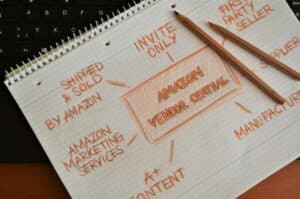 INVITE
ONLY
FIRST
PARTY
SELLER
SHIPPED
& SOLD
BY AMAZON
AMAZON
VENDOR CENTRAL
SUPPLIER
AMAZON
MARKETING
SERVICES
MANUFACTU
A+
CONTENT